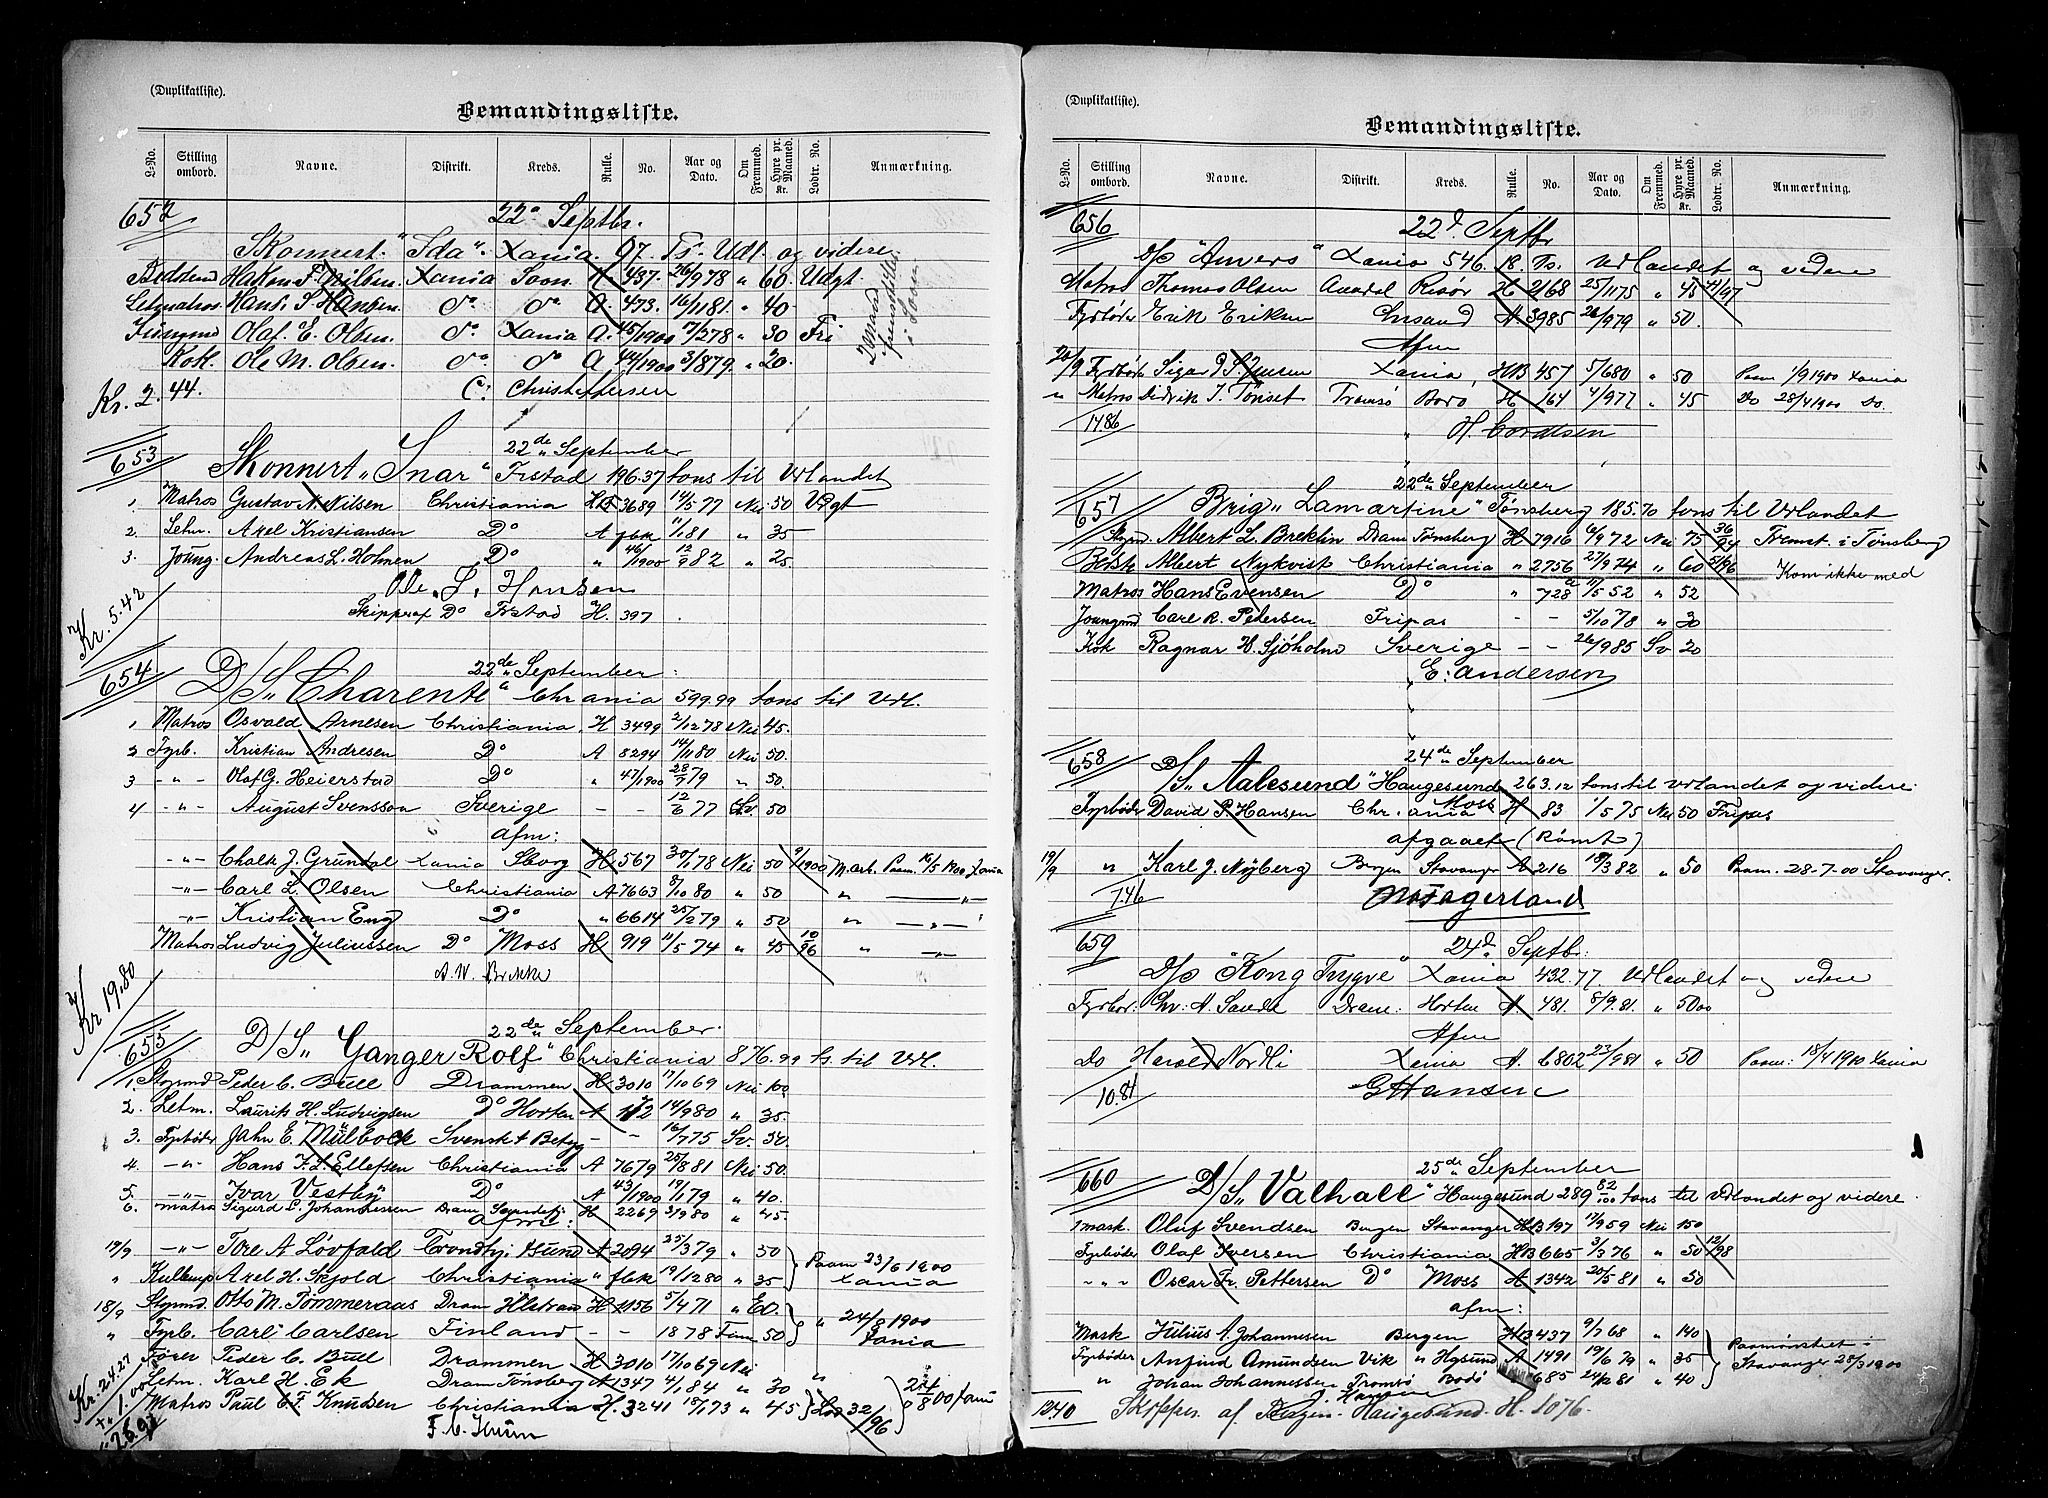 (Duplikatliste).
Bemandingsliste.
L-No. Stilling ombord. Navne. Distrikt. Kreds. Rulle. No. Aar og Dato. Om Fremmed. Hyre pr. Maaned. Kr. Lodtr. No. Anmærkning.
652 22° Septbr.
Skonnert "Ida" Xania 97 Ts. Udl og videre
Bedstmd Hakon F. Nilsen Xania Soon H 437 26/9 78 " 60 Udgt
Letmatros Hans S Hansen d° d° A 473 16/11 81 " 40
Jungmd Olaf E. Olsen d° Xania A 45/1900 17/2 78 " 30 Fri
Kok Ole M. Olsen d° d° A 44/1900 3/8 79 " 20
Kr. 2.44. C: Christoffersen
653 22de September
Skonnert "Snar" Frstad 196.37 tons til Udlandet
1, Matros Gustav N. Nilsen Christiania 3689 14/5 77 Nei 50 Udgt
2. Letm. Axel Kristiansen D° A fbk 11/1 81 " 35
3. Joung. Andreas L. Holmen D° " 46/1900 12/9 82 " 25
Ole L. Hansen
Skipper af D° Frstad H. 397
Kr. 5.42
654 22de September
D/S "Charente" Chrania 599.99 tons til Udl.
1, Matros Osvald Arnesen Christiania H 3499 2/12 78 Nei 45.
2 Fyrb. Kristian Andresen D° A 8294 14/11 80 Nei 50.
3 -"- Olaf G. Heierstad D° " 47/1900 28/7 79 " 50.
4 -"- August Svensson Sverige - - 12/6 77 Sv. 50
afm:
-"- Chalk J. Grundal Xania Sborg H 567 30/1 78 Nei 50 9/1900 M.arb. Paam. 16/5 1900 Xania
-"- Carl L. Olsen Christiania A 7663 8/10 80 " 50 " "
-"- Kristian Eng D° " 6614 25/2 79 " 50 " -"-
Matros Ludvig Juliussen D° Moss H 919 11/5 74 " 45 10/96 " -"-
A. W. Brekke
Kr 19.80
655 22de September.
D/S "Ganger Rolf" Christiania 876.99 ts. til Udl.
1, Styrmd Peder C. Bull Drammen H 3010 17/10 69 Nei 100
2. Letm. Laurits H. Ludvigsen D° Horten A 112 14/9 80 " 35.
3. Fyrbøder Jahn E. Mülbock Svensk Betyg - - 16/7 75 Sv. 50.
4. -"- Hans F. L. Ellefsen Christiania A 7679 25/8 81 Nei 50.
5. -"- Ivar Vestby D° A 43/1900 19/1 79 " 40.
6. matros Sigurd L. Johannessen Dram H 2269 3/9 80 " 45.
afm:
19/9 -"- Tore A Løvfald Trondhj. Asund A 2094 25/3 79 " 50 Paam 23/6 1900
" Kullemp Axel H. Skjold Christiania " fbk 19/12 80 " 35 Xania
18/9 Styrmd. Otto M. Tømmeraas Dram H 1156 5/4 71 " 80. " 24/8 1900
" Fyrb. Carl Carlsen Finland - - 1878 Finn 50 Xania
Fører Peder C. Bull Drammen H 3010 17/10 69 Nei "
Letm. Karl H. Ek Dram Tønsberg A 1347 4/1 84 " 30 24/8 00 Xania
Matros Paul C. F. Knudsen Christiania H. 3241 18/1 73 " 45 32/96
Kr. 24.27
1.00
F. C. Husum
(Duplikatliste).
Bemandingsliste.
L-No. Stilling ombord. Navne. Distrikt. Kreds. Rulle. No. Aar og Dato. Om Fremmed. Hyre pr. Maaned. Kr. Lodtr. No. Anmærkning.
656 22d Septbr
D/S "Anvers" Xania 546.18. Ts. Udlandet og videre
Matros Thomas Olsen Arendal Risør H 2168 25/11 75 " 45 41/97
Fyrbøder Erik Eriksen Chrsand A 3985 26/9 79 " 50.
Afm
20/9 Fyrbøder Sigurd S. Jensen Xania, HB 457 5/6 80 " 50 Paam 1/9 1900 Xania
" Matros Didrik J. Tønset Tromsø Bodø H 164 4/9 77 " 45 Do 28/4 1900 Do.
14.86 H. Cordtsen
657 22de September
Brig "Lamartine" Tønsberg 185.70 tons til Udlandet
Stmd. Albert L. Brektin Dram Tønsberg H 7916 6/9 72 Nei 75 36/94 Fremst. i Tønsberg
Bedst Albert Nykvist Christiania " 2756 27/9 74 " 60 21/96 Kom ikke med
Matros Hans Evensen D° " 728 11/5 52 " 52
Joungmd Carl R. Pedersen Fripas - - 5/10 78 " 30
Kok Ragnar W. Sjøholm Sverige - - 26/9 85 Sv 20
E. Andersen
658 24de September
D/S "Aalesund" Haugesund 263.12 tons til Udlandet og videre.
Fyrbøder David P. Hansen Chr.ania Moss H 83 1/5 75 Nei 50 Fripas
afgaaet (Rømt)
19/9 " Karl J. Nyberg Bergen Stavanger A 216 10/3 82 " 50 Paam. 28-7-00 Stavanger.
7.46
659 24d Septbr.
D/S "Kong Trygve" Xania 432.77. Udlandet og videre
Fyrbør. Chr: A Sande Dram: Horten A 481 8/9.81 " 5000
Afm
Do Harald Nordli Xania A. 6802 23/9 81 " 50 Paam: 18/4 1900 Xania
10.81 G Hansen
660 25de September
D/S "Valhall" Haugesund 289 82/100 tons til Udlandet og videre.
1 mask. Oluf Svendsen Bergen Stavanger HB 197 17/9 59 Nei 150
Fyrbøder Olaf Iversen Christiania HB 665 3/3 76 " 50 12/98
" " " Oscar Fr. Pettersen D° Moss A 1342 20/5 81 " 50
afm:
Mask Julius A. Johannesen Bergen HB 437 9/7 68 " 140 Paamønstret i
Fyrbøder Anfind Amundsen Vik " Hgsund A 1491 19/6 79 " 35 Stavanger 28/3 1900
" Johan Johannessen Tromsø Bodø 685 24/12 81 " 40
Hansen
1240 Skipper af Bergen Haugesund H. 1076.